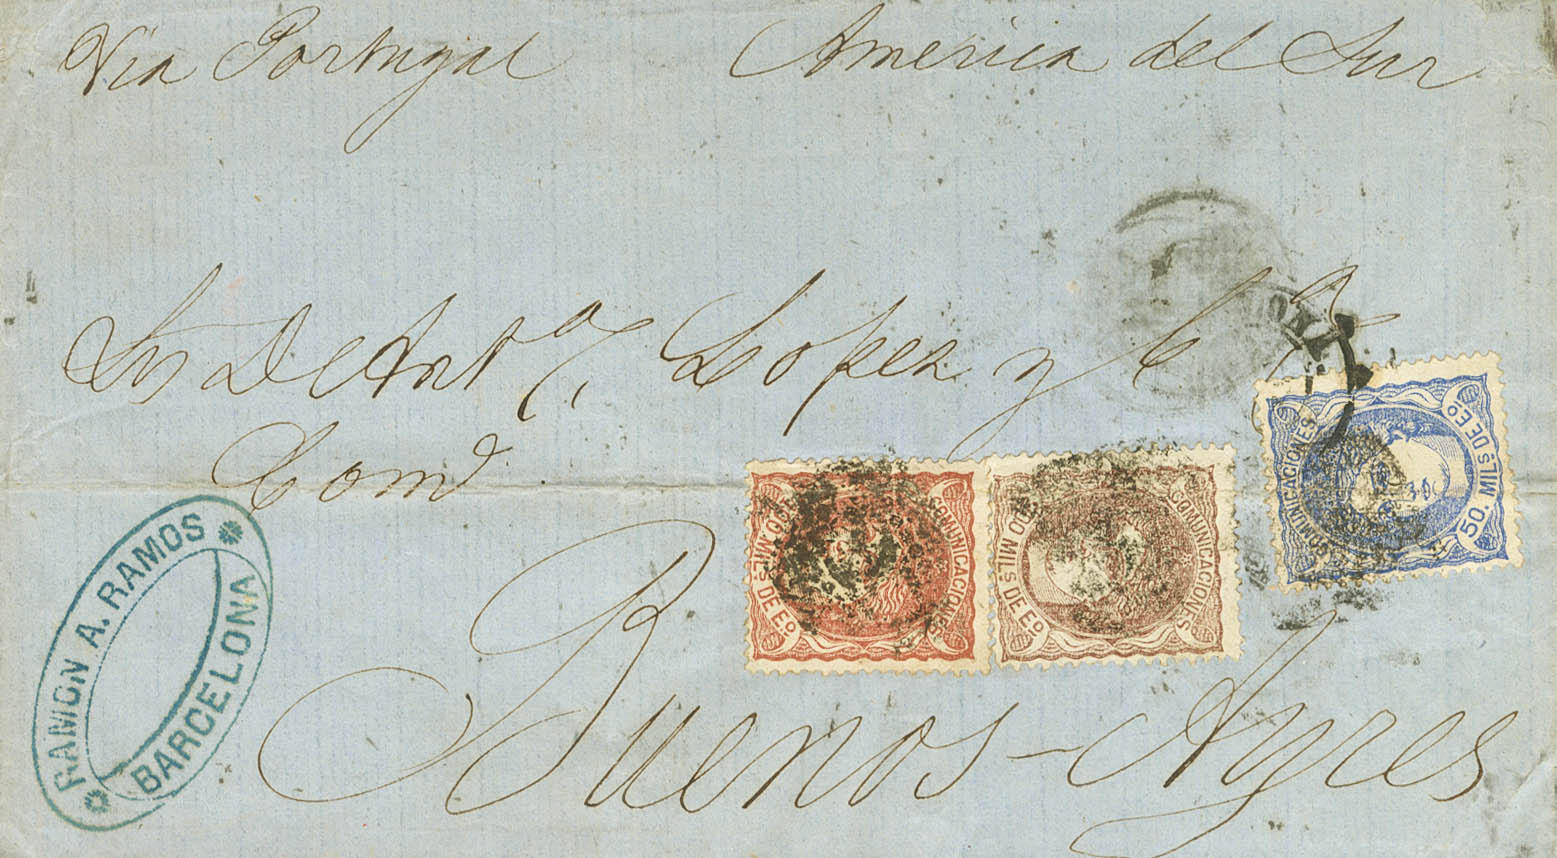 Via Portugal América del Sur
Sr D. Antº Lopez y Cª
Comd.
Buenos-Ayres
RAMON A. RAMOS
BARCELONA
COMUNICACIONES
MILS DE Eº
COMUNICACIONES
MILS DE Eº
COMUNICACIONES
50. MILS DE Eº